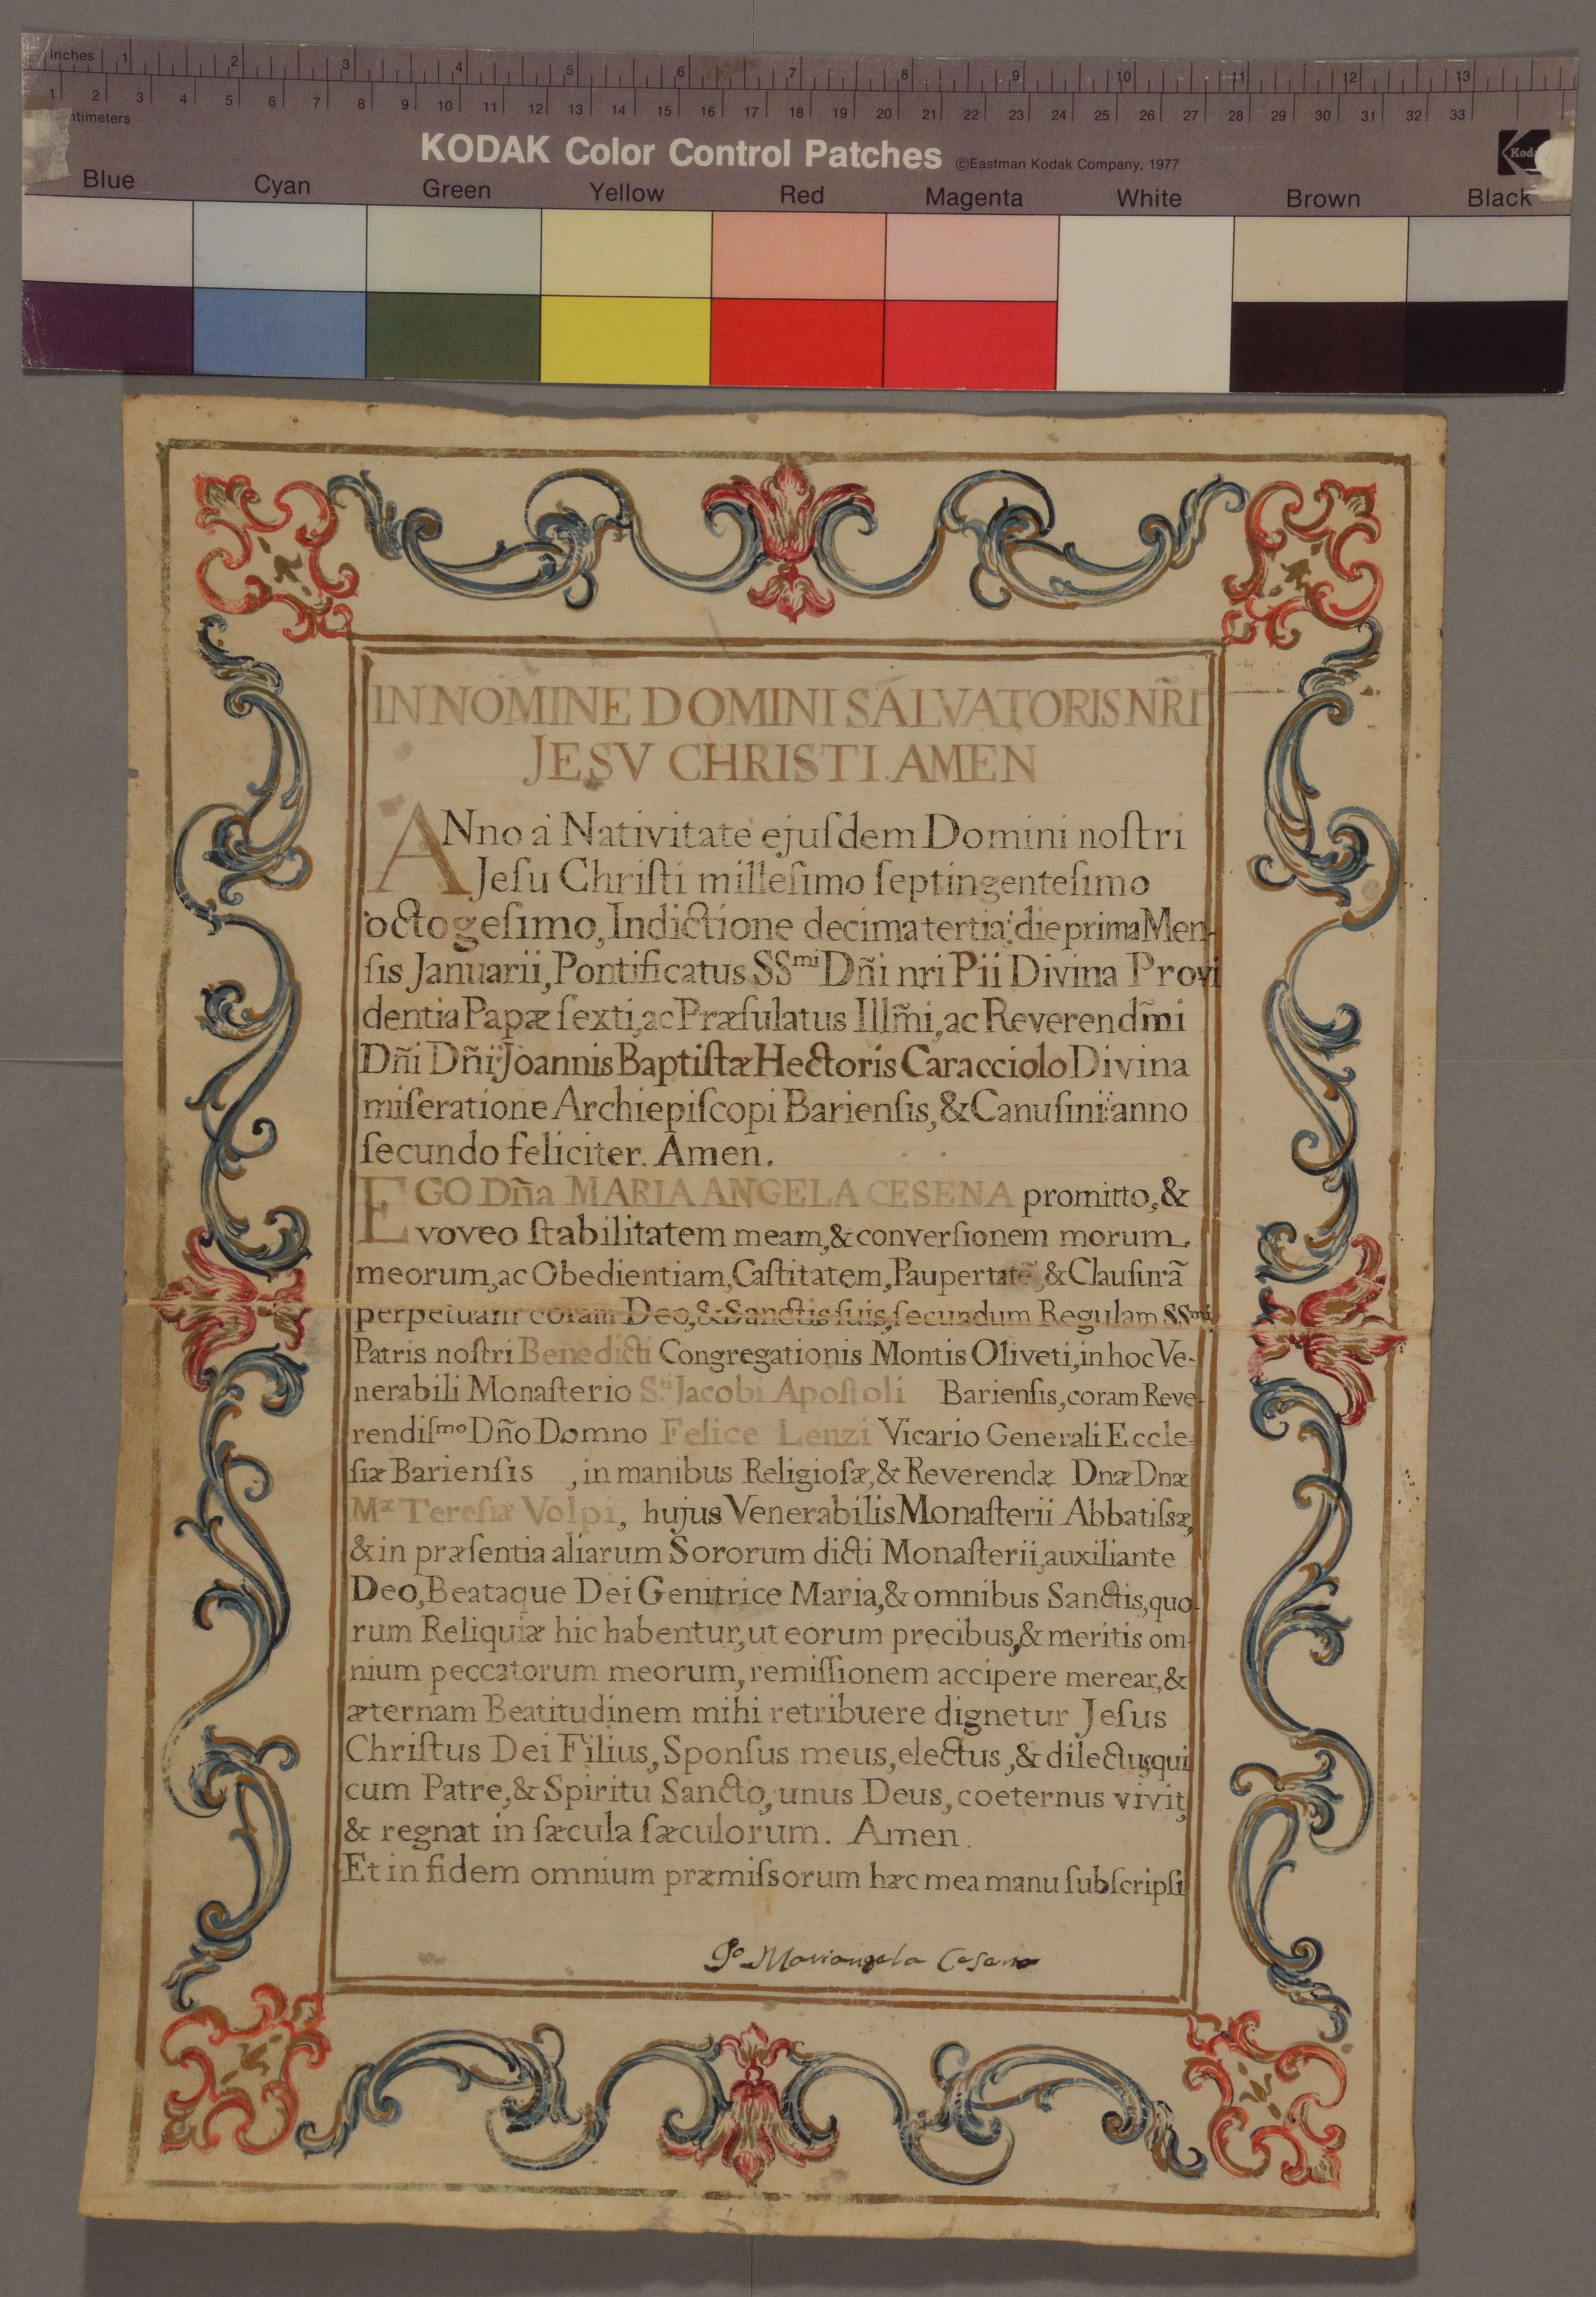 Inches 1 2 3 4 5 6 7 8 9 10 11 12 13
1 2 3 4 5 6 7 8 9 10 11 12 13 14 15 16 17 18 19 20 21 22 23 24 25 26 27 28 29 30 31 32 33
ntimeters
KODAK Color Control Patches ©Eastman Kodak Company, 1977
Blue Cyan Green Yellow Red Magenta White Brown Black
IN NOMINE DOMINI SALVATORIS NR̃I
JESV CHRISTI. AMEN
ANno à Nativitate ejuſdem Domini noſtri
Jeſu Chriſti milleſimo ſeptingenteſimo
octogeſimo, Indictione decima tertia; die prima Men-
ſis Januarii, Pontificatus SSmi Dñi nri Pii Divina Provi
dentia Papæ ſexti, ac Præſulatus Illm̃i, ac Reverendm̃i
Dñi Dñi Joannis Baptiſtæ Hectoris Caracciolo Divina
miſeratione Archiepiſcopi Barienſis, & Canuſini: anno
ſecundo feliciter. Amen.
EGO Dña MARIA ANGELA CESENA promitto, &
voveo ſtabilitatem meam, & converſionem morum
meorum, ac Obedientiam, Caſtitatem, Paupertatē, & Clauſurã
perpetuam coram Deo, & Sanctis ſuis, ſecundum Regulam SSmi
Patris noſtri Benedicti Congregationis Montis Oliveti, in hoc Ve-
nerabili Monaſterio Sti Jacobi Apoſtoli Barienſis, coram Reve-
rendiſmo Dño Domno Felice Lenzi Vicario Generali Eccle-
ſiæ Barienſis , in manibus Religioſæ, & Reverendæ Dnæ Dnæ
Mæ Tereſiæ Volpi, hujus Venerabilis Monaſterii Abbatiſsæ,
& in præſentia aliarum Sororum dicti Monaſterii, auxiliante
Deo, Beataque Dei Genitrice Maria, & omnibus Sanctis, quo-
rum Reliquiæ hic habentur, ut eorum precibus, & meritis om-
nium peccatorum meorum, remiſſionem accipere merear, &
æternam Beatitudinem mihi retribuere dignetur Jeſus
Chriſtus Dei Filius, Sponſus meus, electus, & dilectus, qui
cum Patre, & Spiritu Sancto, unus Deus, coeternus vivit,
& regnat in ſæcula ſæculorum. Amen.
Et in fidem omnium præmiſsorum hæc mea manu ſubſcripſi
Io Mariangela Cesena